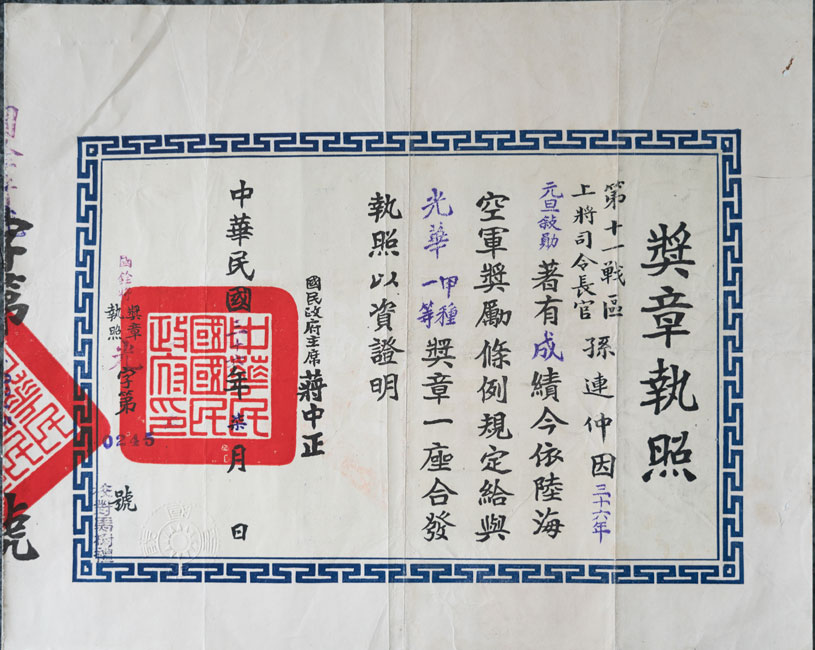 獎章執照
第十一戰區
上將司令長官
孫連仲因三十六年
元旦敍勳著有成績今依陸海
空軍獎勵條例規定給與
光華甲種一等獎章一座合發
執照以資證明
國民政府主席 蔣中正
中華民國三十六年柒月 日
中華民國國民政府印
獎章執照
字第0245號
字第
號